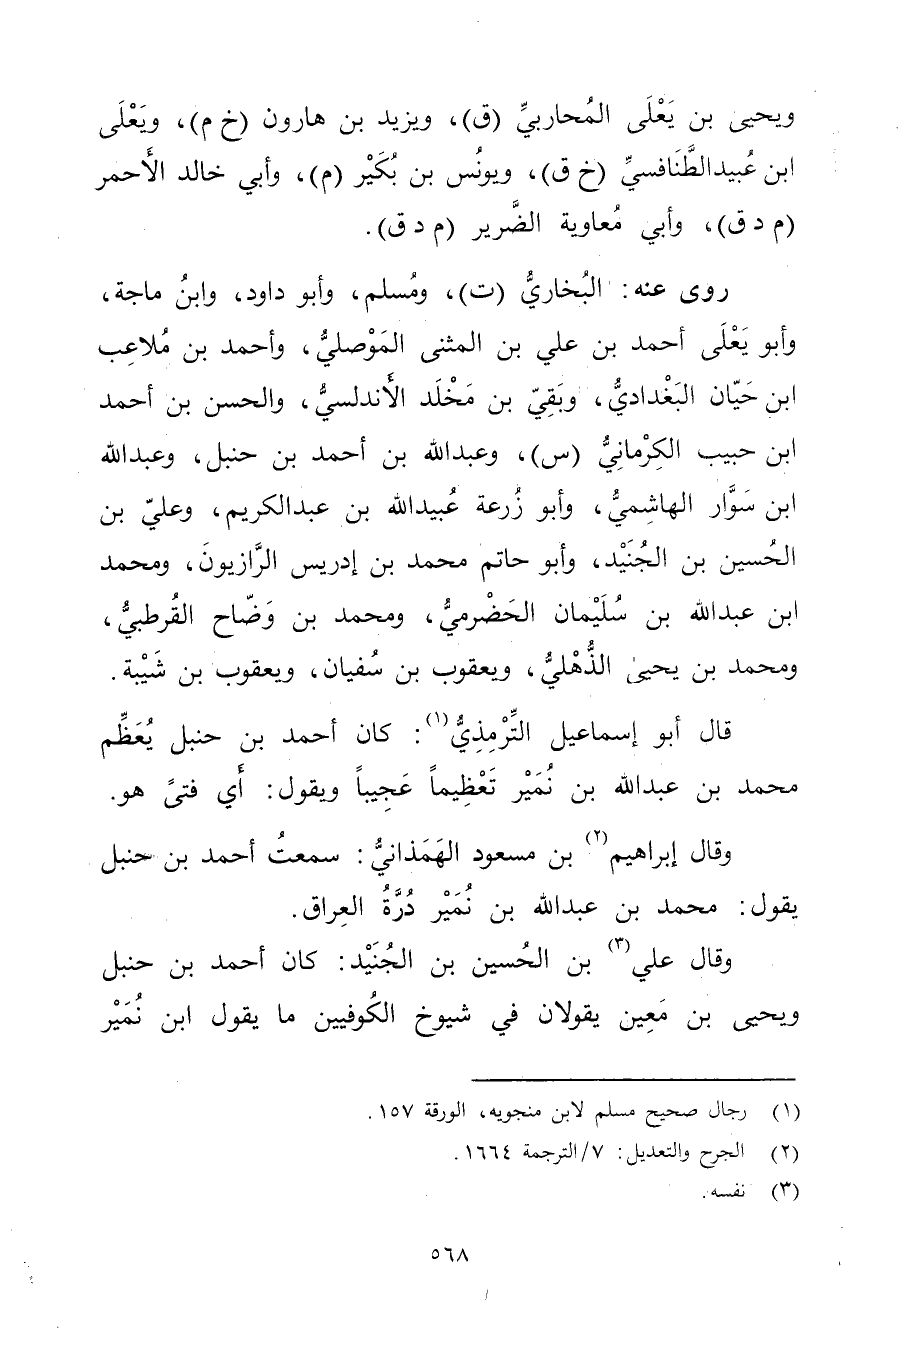 ويحيى بن يَعْلَى المُحاربيِّ (ق)، ويزيد بن هارون (خ م)، ويَعْلَى
ابن عُبيدالطَّنَافسيِّ (خ ق)، ويونُس بن بُكَيْر (م)، وأبي خالد الأَحمر
(م د ق)، وأبي مُعاوية الضَّرير (م د ق).
روى عنه: البُخاريُّ (ت)، ومُسلم، وأبو داود، وابنُ ماجة،
وأبو يَعْلَى أحمد بن علي بن المثنى المَوْصليُّ، وأحمد بن مُلاعِب
ابن حَيّان البَغْداديُّ، وبَقِيّ بن مَخْلَد الأَندلسيُّ، والحسن بن أحمد
ابن حبيب الكِرْمانِيُّ (س)، وعبدالله بن أحمد بن حنبل، وعبدالله
ابن سَوَّار الهاشِميُّ، وأبو زُرعة عُبيدالله بن عبدالكريم، وعليّ بن
الحُسين بن الجُنَيْد، وأبو حاتم محمد بن إدريس الرَّازيونَ، ومحمد
ابن عبدالله بن سُلَيْمان الحَضْرميُّ، ومحمد بن وَضّاح القُرطبيُّ،
ومحمد بن يحيىٰ الذُّهْليُّ، ويعقوب بن سُفيان، ويعقوب بن شَيْبة.
قال أبو إسماعيل التِّرْمِذِيُّ(١): كان أحمد بن حنبل يُعَظِّم
محمد بن عبدالله بن نُمَيْر تَعْظِيماً عَجِيباً ويقول: أَي فتىً هو.
وقال إبراهيم(٢) بن مسعود الهَمَذانيُّ: سمعتُ أحمد بن حنبل
يقول: محمد بن عبدالله بن نُمَيْر دُرَّةُ العِراق.
وقال علي(٣) بن الحُسين بن الجُنَيْد: كان أحمد بن حنبل
ويحيى بن مَعِين يقولان في شيوخ الكُوفيين ما يقول ابن نُمَيْر
(١) رجال صحيح مسلم لابن منجويه، الورقة ١٥٧.
(٢) الجرح والتعديل: ٧/الترجمة ١٦٦٤.
(٣) نفسه.
٥٦٨